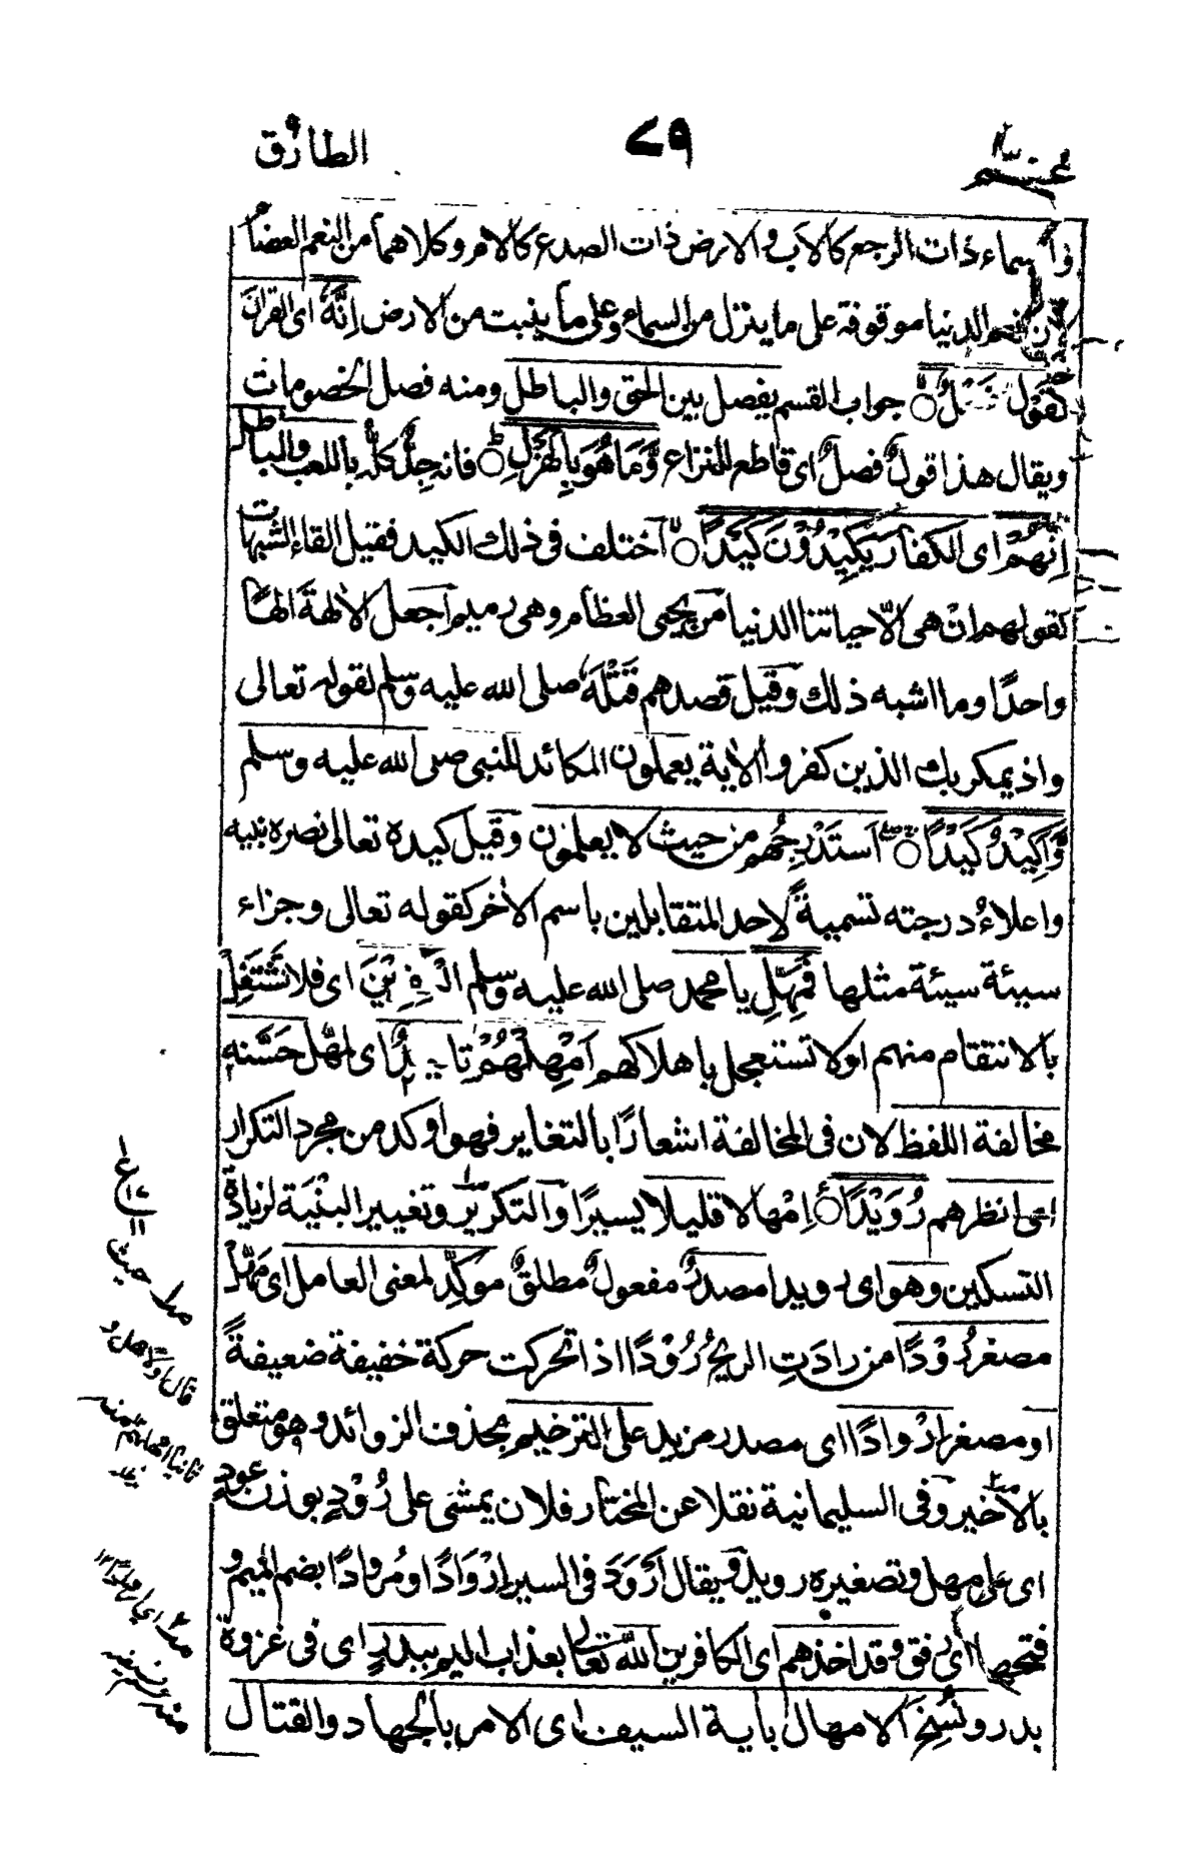 عم ٣٠
٧٩
الطارق
والسماء ذات الرجع كالاب والارض ذات الصدع كالام وكلاهما من النعم العضام
لان نعم الدنيا موقوفة على ما ينزل من السماء وعلى ما ينبت من الارض اِنَّهٗ اى القراٰن
لَقَوْل فَصْلٌ جواب القسم يفصل بين الحق والباطل ومنه فصل الخصومات
ويقال هذا قولٌ فصلٌ اى قاطع للنزاع وَّمَا هُوَ بِالْهَزْلِ فانه جِدٌّ كلُّه باللعب والباطل
اِنَّهُمْ اى الكفار يَكِيْدُوْنَ كَيْدًا اختلف فى ذلك الكيد فقيل القاء الشبهات
كقولهم ان هى الّا حياتنا الدنيا من يحيى العظام وهى رميم اجعل الاٰلهةَ الهًا
واحدًا وما اشبه ذلك وقيل قصدهم قَتْلَهٗ صلى الله عليه وسلم لقوله تعالى
واذ يمكر بك الذين كفروا الاٰية يعملون المكائد للنبى صلى الله عليه وسلم
وَّاَكِيْدُ كَيْدًا استَدْرِجُهم من حيث لا يعلمون وقيل كيده تعالى نصره نبيه
واعلاءُ درجته تسميةً لاحد المتقابلين باسم الاٰخر كقوله تعالى وجزاء
سيئة سيئة مثلها فَمَهِّلِ يا محمد صلى الله عليه وسلم الْكٰفِرِيْنَ اى فلا تَشْتَغِلْ
بالانتقام منهم او لا تستعجل باهلاكهم اَمْهِلْهُمْ تاكيدٌ اى لمَهِّل حَسَّنه
مخالفة اللفظ لان فى المخالفة اشعارًا بالتغاير فهو اوكد من مجرد التكرار
اى انظرهم رُوَيْدًا اِمْهالا قليلا يسيرًا والتكرير وتغيير البنْيَة لزيادة
التسكين وهو اى رويدا مصدرٌ مفعولٌ مطلقٌ موكِّد لمعنى العامل اى مَهِّل
مصغر رُوْدًا من رادَتِ الريحُ رُوْدًا اذا تحركت حركة خفيفة ضعيفةً
او مصغر اِرْوادًا اى مصدر مزيد على الترخيم بحذف الزوائد وهو متعلق
بالاخير وفى السليمانية نقلا عن المختار فلان يمشى على رُوْدٍ بوزن عودٍ
اى على مهل وتصغيره رويد ويقال اَرْوَدَ فى السير اِرْوَادًا ومُروادًا بضم الميم و
فتحها اى رفق وقد اخذهم اى الكافرين اللهُ تعالى بعذاب اليم ببدرٍ اى فى غزوة
بدر ونُسِخَ الامهال باٰية السيف اى الامر بالجهاد والقتال
حيث
قال اولا مهل و
ثانيا امهلهم منه